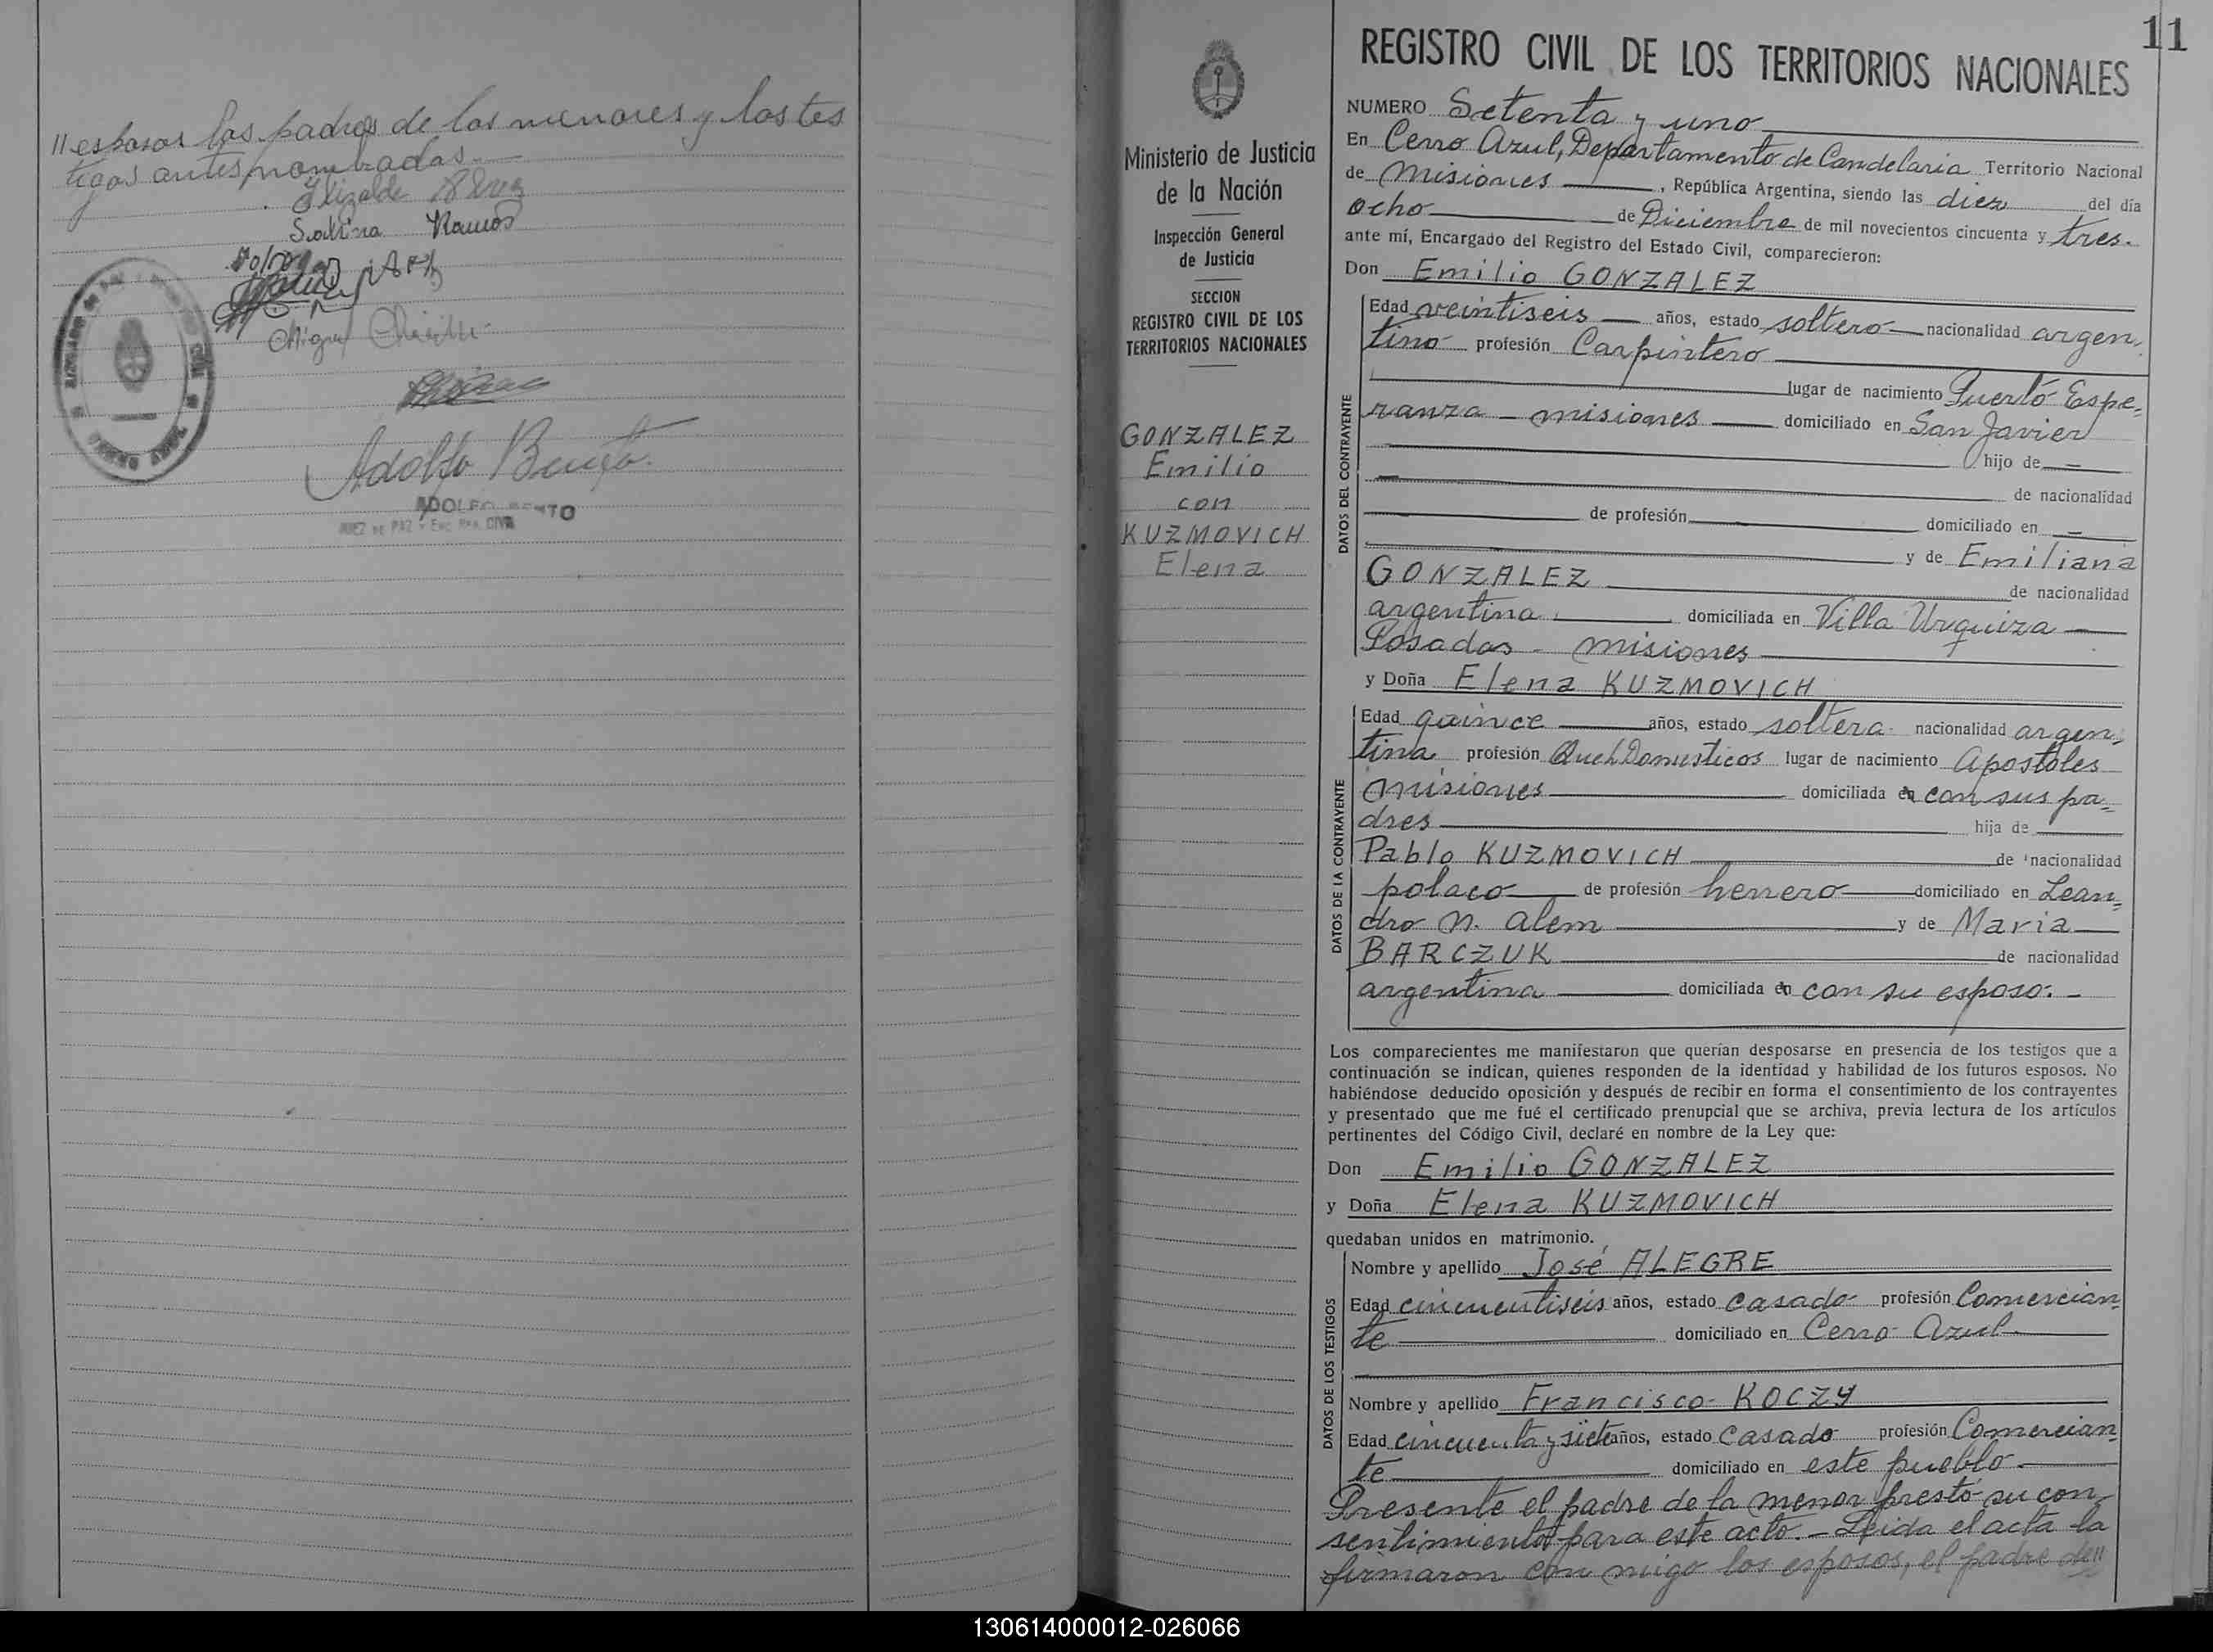 // esposos los padres de los menores y los tes
tigos antes nombrados.
Elizalde
Sabina Ramos
Miguel
Adolfo Bento
ADOLFO BENTO
JUEZ DE PAZ Y ENC. REG. CIVIL
11
REGISTRO CIVIL DE LOS TERRITORIOS NACIONALES
Ministerio de Justicia
de la Nación
Inspección General
de Justicia
SECCION
REGISTRO CIVIL DE LOS
TERRITORIOS NACIONALES
GONZALEZ
Emilio
con
KUZMOVICH
Elena
NUMERO Setenta y uno
En Cerro Azul, Departamento de Candelaria Territorio Nacional
de Misiones , República Argentina, siendo las diez del día
ocho de Diciembre de mil novecientos cincuenta y tres.
ante mí, Encargado del Registro del Estado Civil, comparecieron:
Don Emilio GONZALEZ
DATOS DEL CONTRAYENTE
Edad veintiseis años, estado soltero nacionalidad argen-
tino profesión Carpintero
lugar de nacimiento Puerto Espe=
ranza - misiones domiciliado en San Javier
hijo de
de nacionalidad
de profesión domiciliado en
y de Emiliana
GONZALEZ de nacionalidad
argentina domiciliada en Villa Urquiza
Posadas - misiones
y Doña Elena KUZMOVICH
DATOS DE LA CONTRAYENTE
Edad quince años, estado soltera nacionalidad argen=
tina profesión Queh Domesticos lugar de nacimiento Apostoles
Misiones domiciliada en con sus pa=
dres hija de
Pablo KUZMOVICH de nacionalidad
polaco de profesión herrero domiciliado en Lean=
dro N. Alem y de Maria
BARCZUK de nacionalidad
argentina domiciliada en con su esposo. -
Los comparecientes me manifestaron que querían desposarse en presencia de los testigos que a
continuación se indican, quienes responden de la identidad y habilidad de los futuros esposos. No
habiéndose deducido oposición y después de recibir en forma el consentimiento de los contrayentes
y presentado que me fué el certificado prenupcial que se archiva, previa lectura de los artículos
pertinentes del Código Civil, declaré en nombre de la Ley que:
Don Emilio GONZALEZ
y Doña Elena KUZMOVICH
quedaban unidos en matrimonio.
DATOS DE LOS TESTIGOS
Nombre y apellido José ALEGRE
Edad cincuentiseis años, estado casado profesión Comercian=
te domiciliado en Cerro Azul
Nombre y apellido Francisco KOCZY
Edad cincuenta y siete años, estado casado profesión Comercian=
te domiciliado en este pueblo.
Presente el padre de la menor prestó su con-
sentimiento para este acto. - Leida el acta la
firmaron con migo los esposos, el padre de //
130614000012-026066